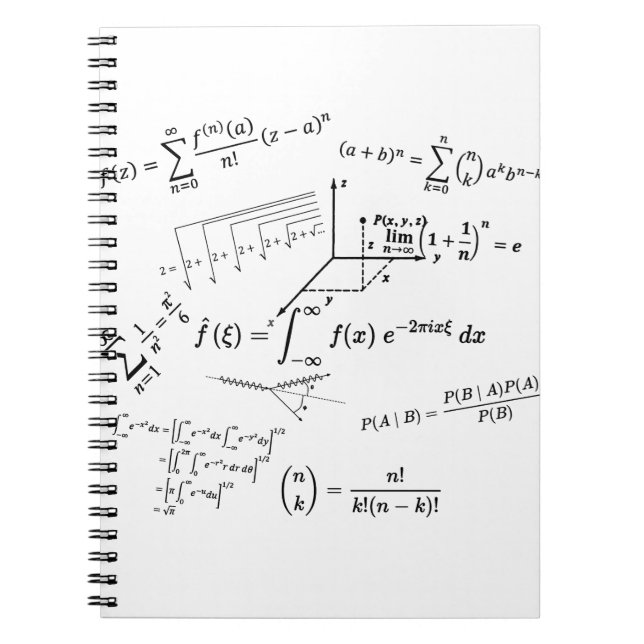 f(z) = ∑_{n=0}^{∞} f^{(n)}(a)/n! (z − a)^n
(a + b)^n = ∑_{k=0}^{n} (n k) a^k b^{n−k}
z
P(x, y, z)
lim_{n→∞} (1 + 1/n)^n = e
z
y
x
y
x
2 = √2 + √2 + √2 + √2 + √2 + √...
∑_{n=1}^{∞} 1/n² = π²/6
f̂(ξ) = ∫_{−∞}^{∞} f(x) e^{−2πixξ} dx
P(A | B) = P(B | A)P(A)/P(B)
∫_{−∞}^{∞} e^{−x²} dx = [∫_{−∞}^{∞} e^{−x²} dx ∫_{−∞}^{∞} e^{−y²} dy]^{1/2}
= [∫_{0}^{2π} ∫_{0}^{∞} e^{−r²} r dr dθ]^{1/2}
= [π ∫_{0}^{∞} e^{−u} du]^{1/2}
= √π
(n k) = n!/k!(n − k)!